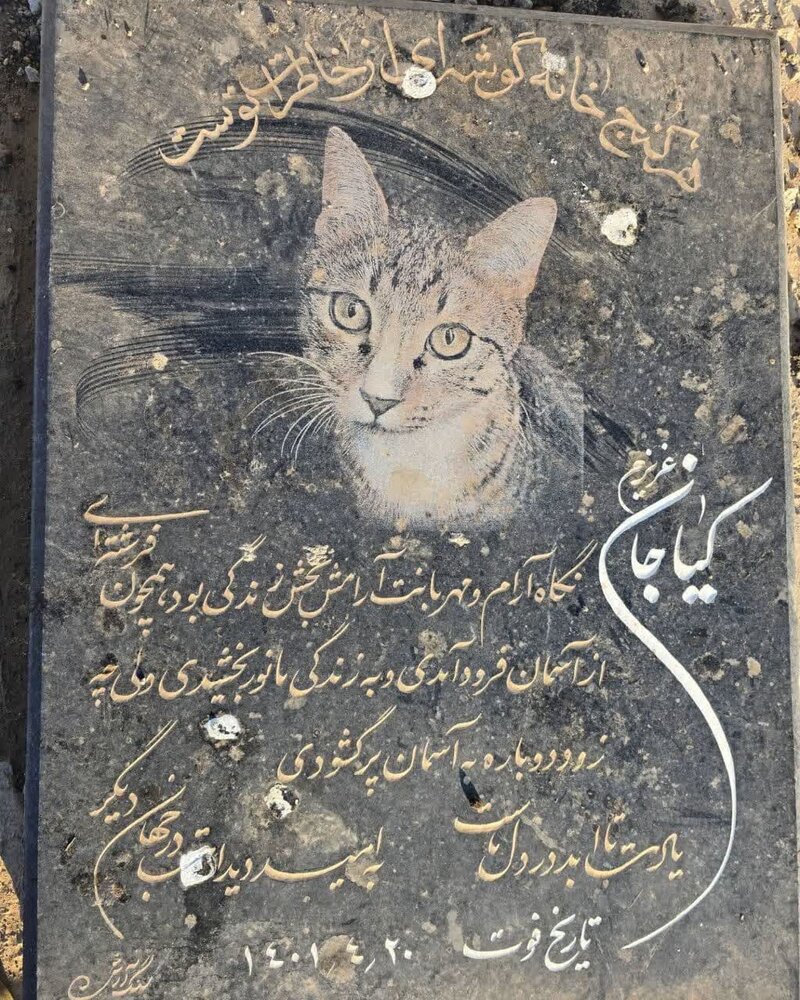 هر کنج خانه گوشه‌ای از خاطرات توست
عزیزم
کیان جان
نگاه آرام و مهربانت آرامش بخش زندگی بود، همچون فرشته‌ای
از آسمان فرود آمدی و به زندگی ما نور بخشیدی ولی چه
زود دوباره به آسمان پر گشودی
یادت تا ابد در دل ماست
به امید دیدارت در جهان دیگر
تاریخ فوت
۱۴۰۱٫۴٫۲۰